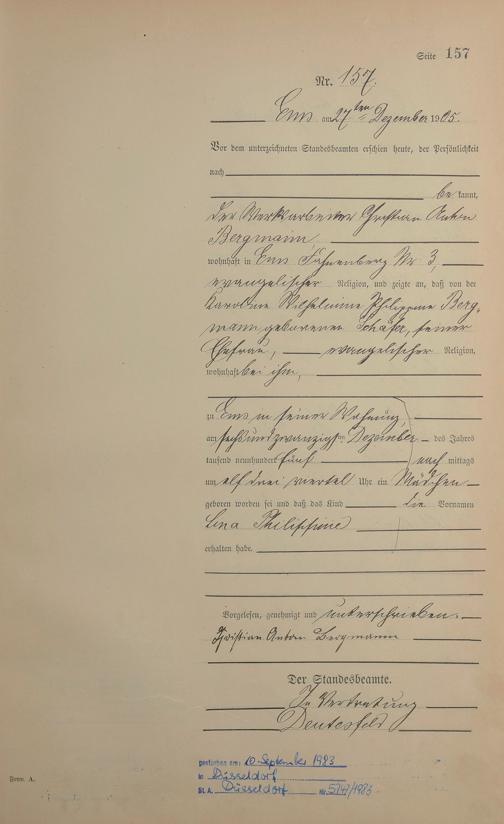 Seite 157
Nr. 157.
Ems am 27ten Dezember 1905.
Vor dem unterzeichneten Standesbeamten erschien heute, der Persönlichkeit
nach
be kannt,
der Werkarbeiter Christian Anton
Bergmann
wohnhaft in Ems Fahnenberg Nr 3,
evangelischer Religion, und zeigte an, daß von der
Karoline Wilhelmine Philippine Berg,
mann geborenen Schäfer, seiner
Ehefrau, evangelischer Religion,
wohnhaft bei ihm,
zu Ems in seiner Wohnung
am sechsundzwanzigsten Dezember des Jahres
tausend neunhundert fünf nach mittags
um elf drei viertel Uhr ein Mädchen
geboren worden sei und daß das Kind die Vornamen
Lina Philippine
erhalten habe.
Vorgelesen, genehmigt und unterschrieben.
Christian Anton Bergmann
Der Standesbeamte.
In Vertretung
gestorben am: 10. September 1983
in Düsseldorf
St. A. Düsseldorf Nr.
Form. A.